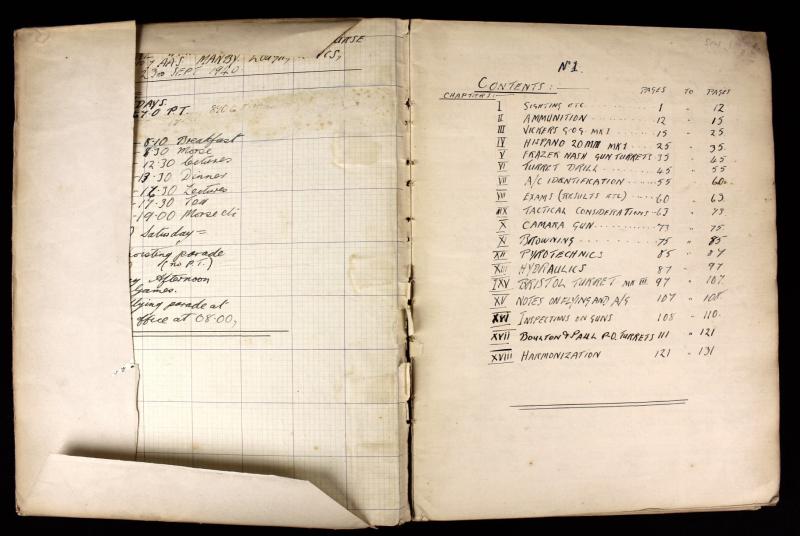 AAS MANBY
23RD SEPT 1940
DAYS.
P.T.
8·10 Breakfast
8·30 Morse
- 12.30 Lectures
- 13.30 Dinner
- 17.30 Lectures
- 17.30 Tea
- 19.00 Morse
Saturday =
parade
(no P.T.)
Afternoon
Games.
parade at
office at 08.00,
No 1.
CONTENTS:-
CHAPTERS: PAGES TO PAGES
I SIGHTING ETC. 1 " 12
II AMMUNITION 12 " 15
III VICKERS G.O. MK I 15 " 25
IV HISPANO 20MM MK I 25 " 35
V FRAZER NASH GUN TURRETS 35 " 45
VI TURRET DRILL 45 " 55
VII A/C IDENTIFICATION 55 " 60
VIII EXAMS (RESULTS ETC) 60 " 63
IIX TACTICAL CONSIDERATIONS 63 " 73
X CAMARA GUN 73 " 75
XI BROWNING 75 " 85
XII PYROTECHNICS 85 " 87
XIII HYDRAULICS 87 " 97
IXV BRISTOL TURRET MK III 97 " 107
XV NOTES ON FLYING AND A/G 107 " 108
XVI INSPECTIONS ON GUNS 108 - 110
XVII BOULTON & PAUL P.D. TURRETS 111 " 121
XVIII HARMONIZATION 121 - 131